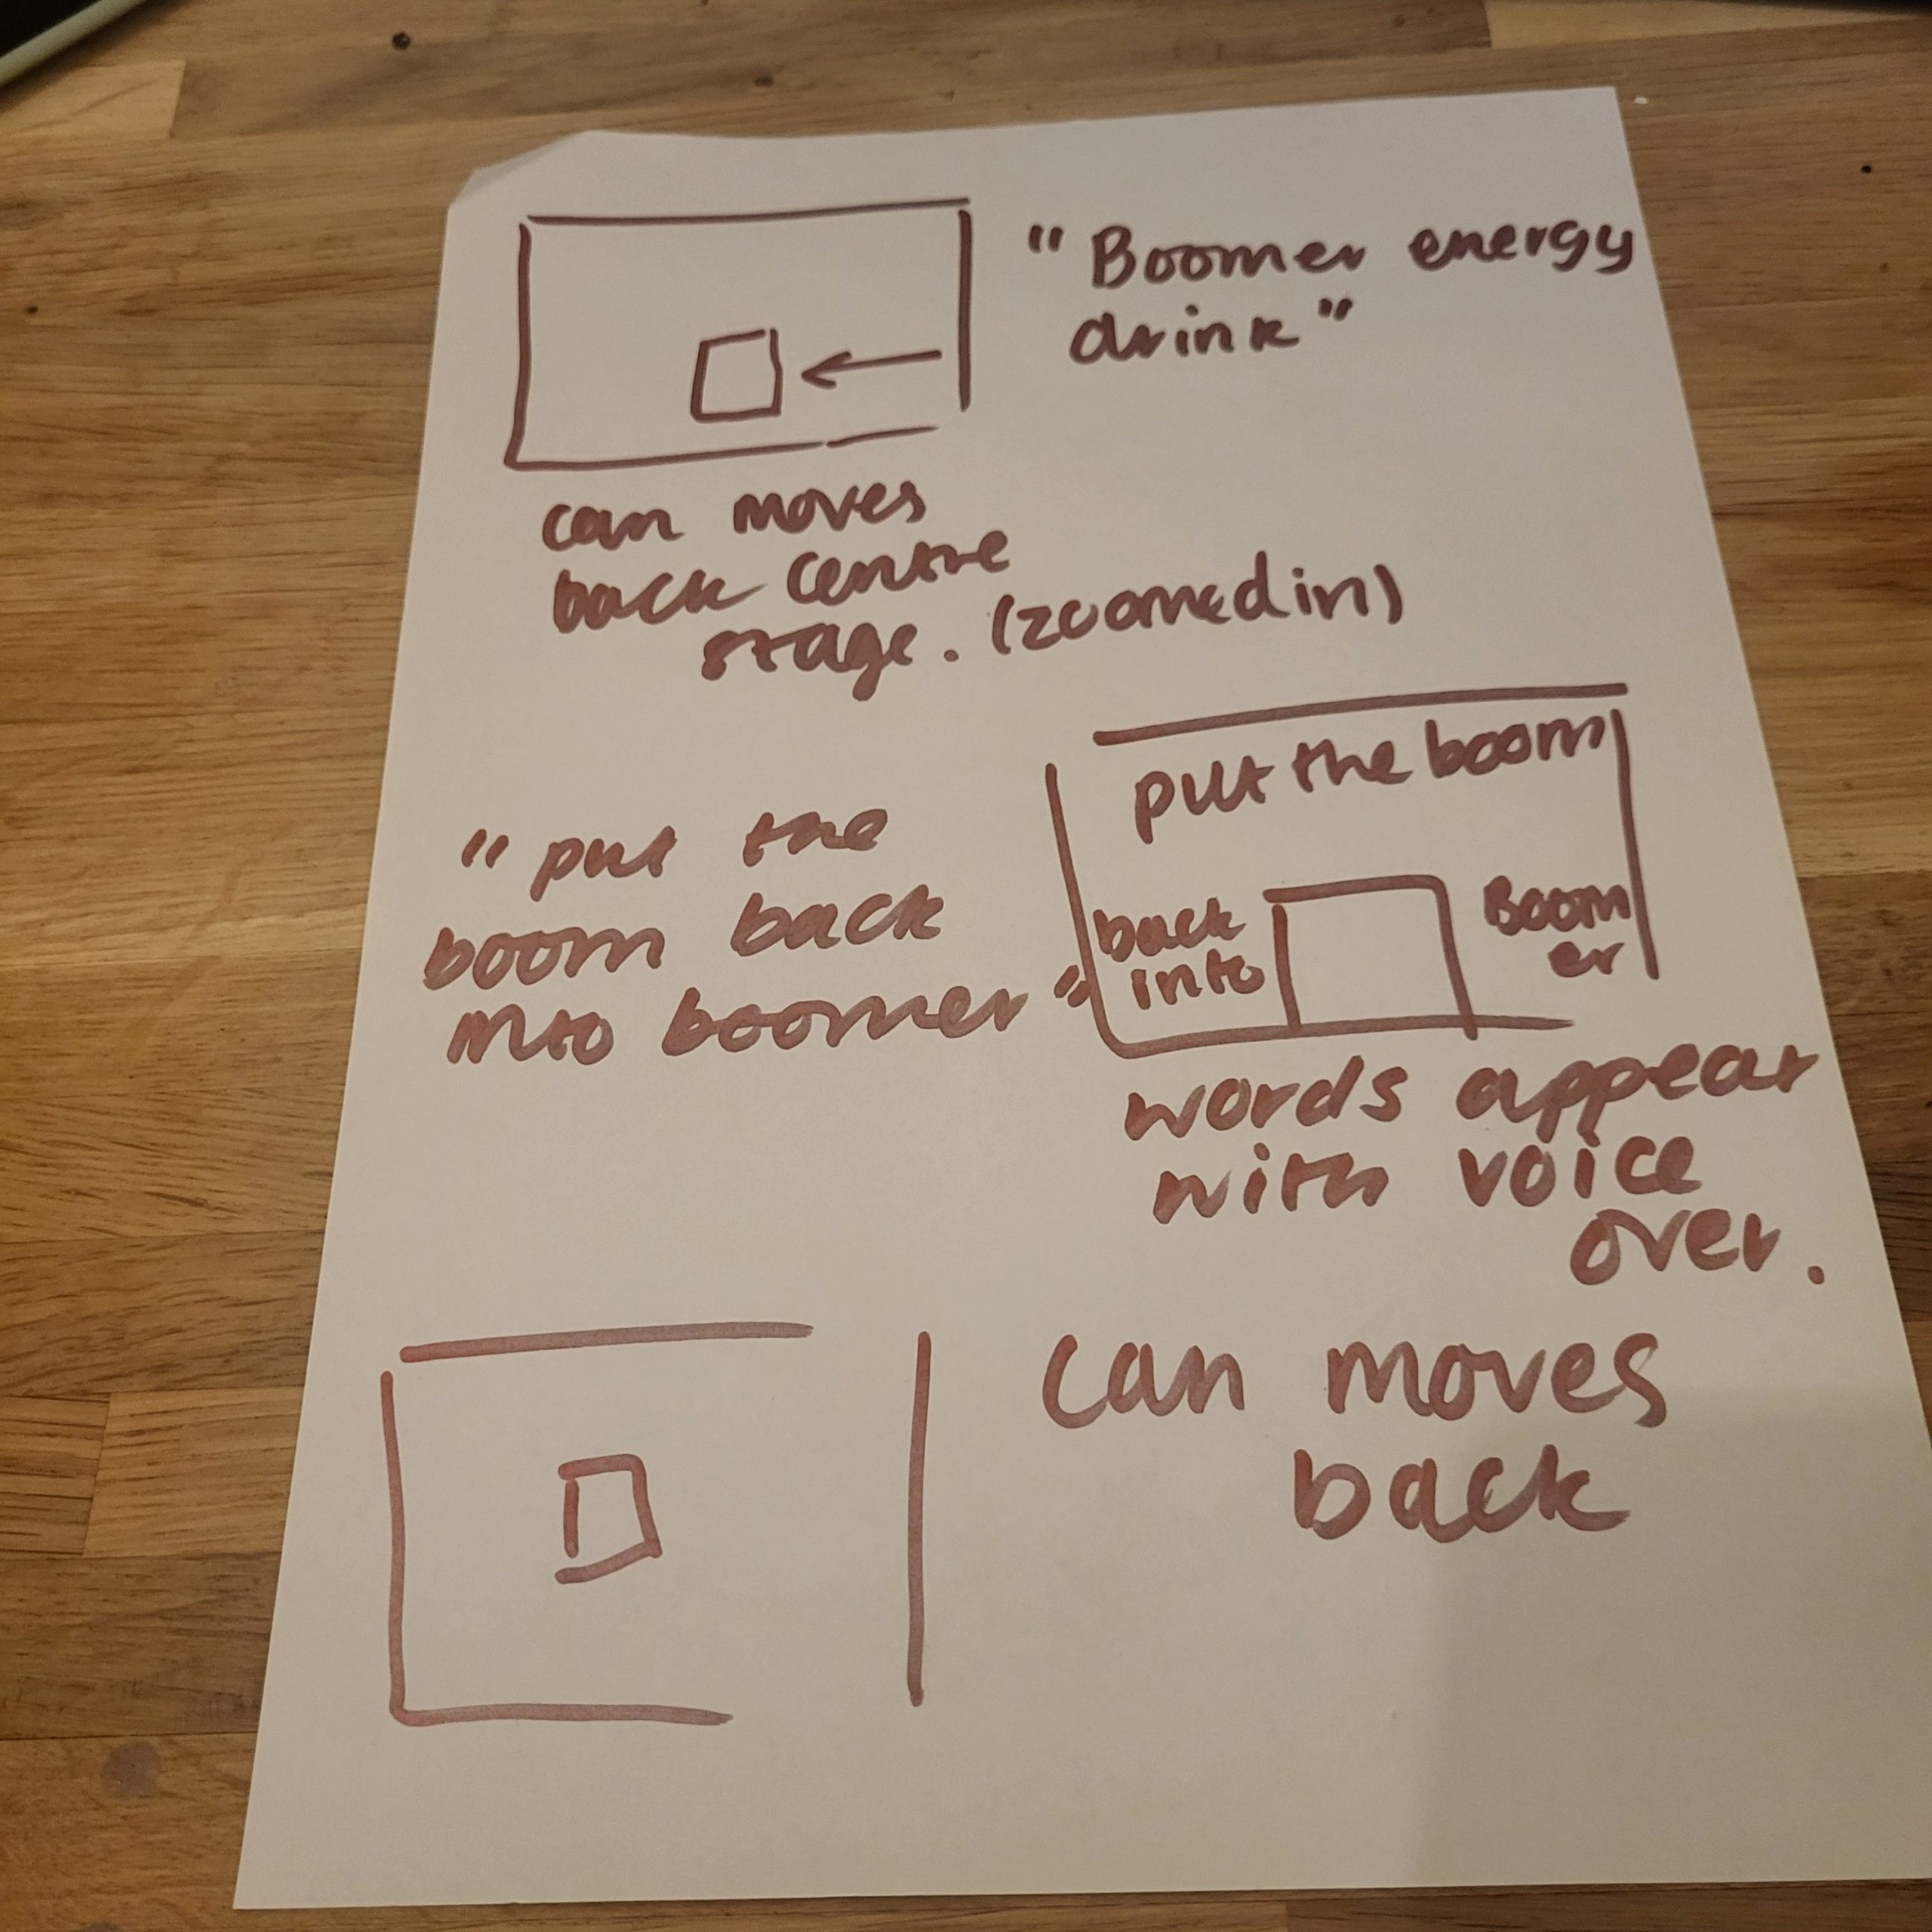 "Boomer energy
drink"
can moves
back centre
stage. (zoomed in)
"put the
boom back
into boomer"
put the boom
back
into
Boom
er
words appear
with voice
over.
can moves
back